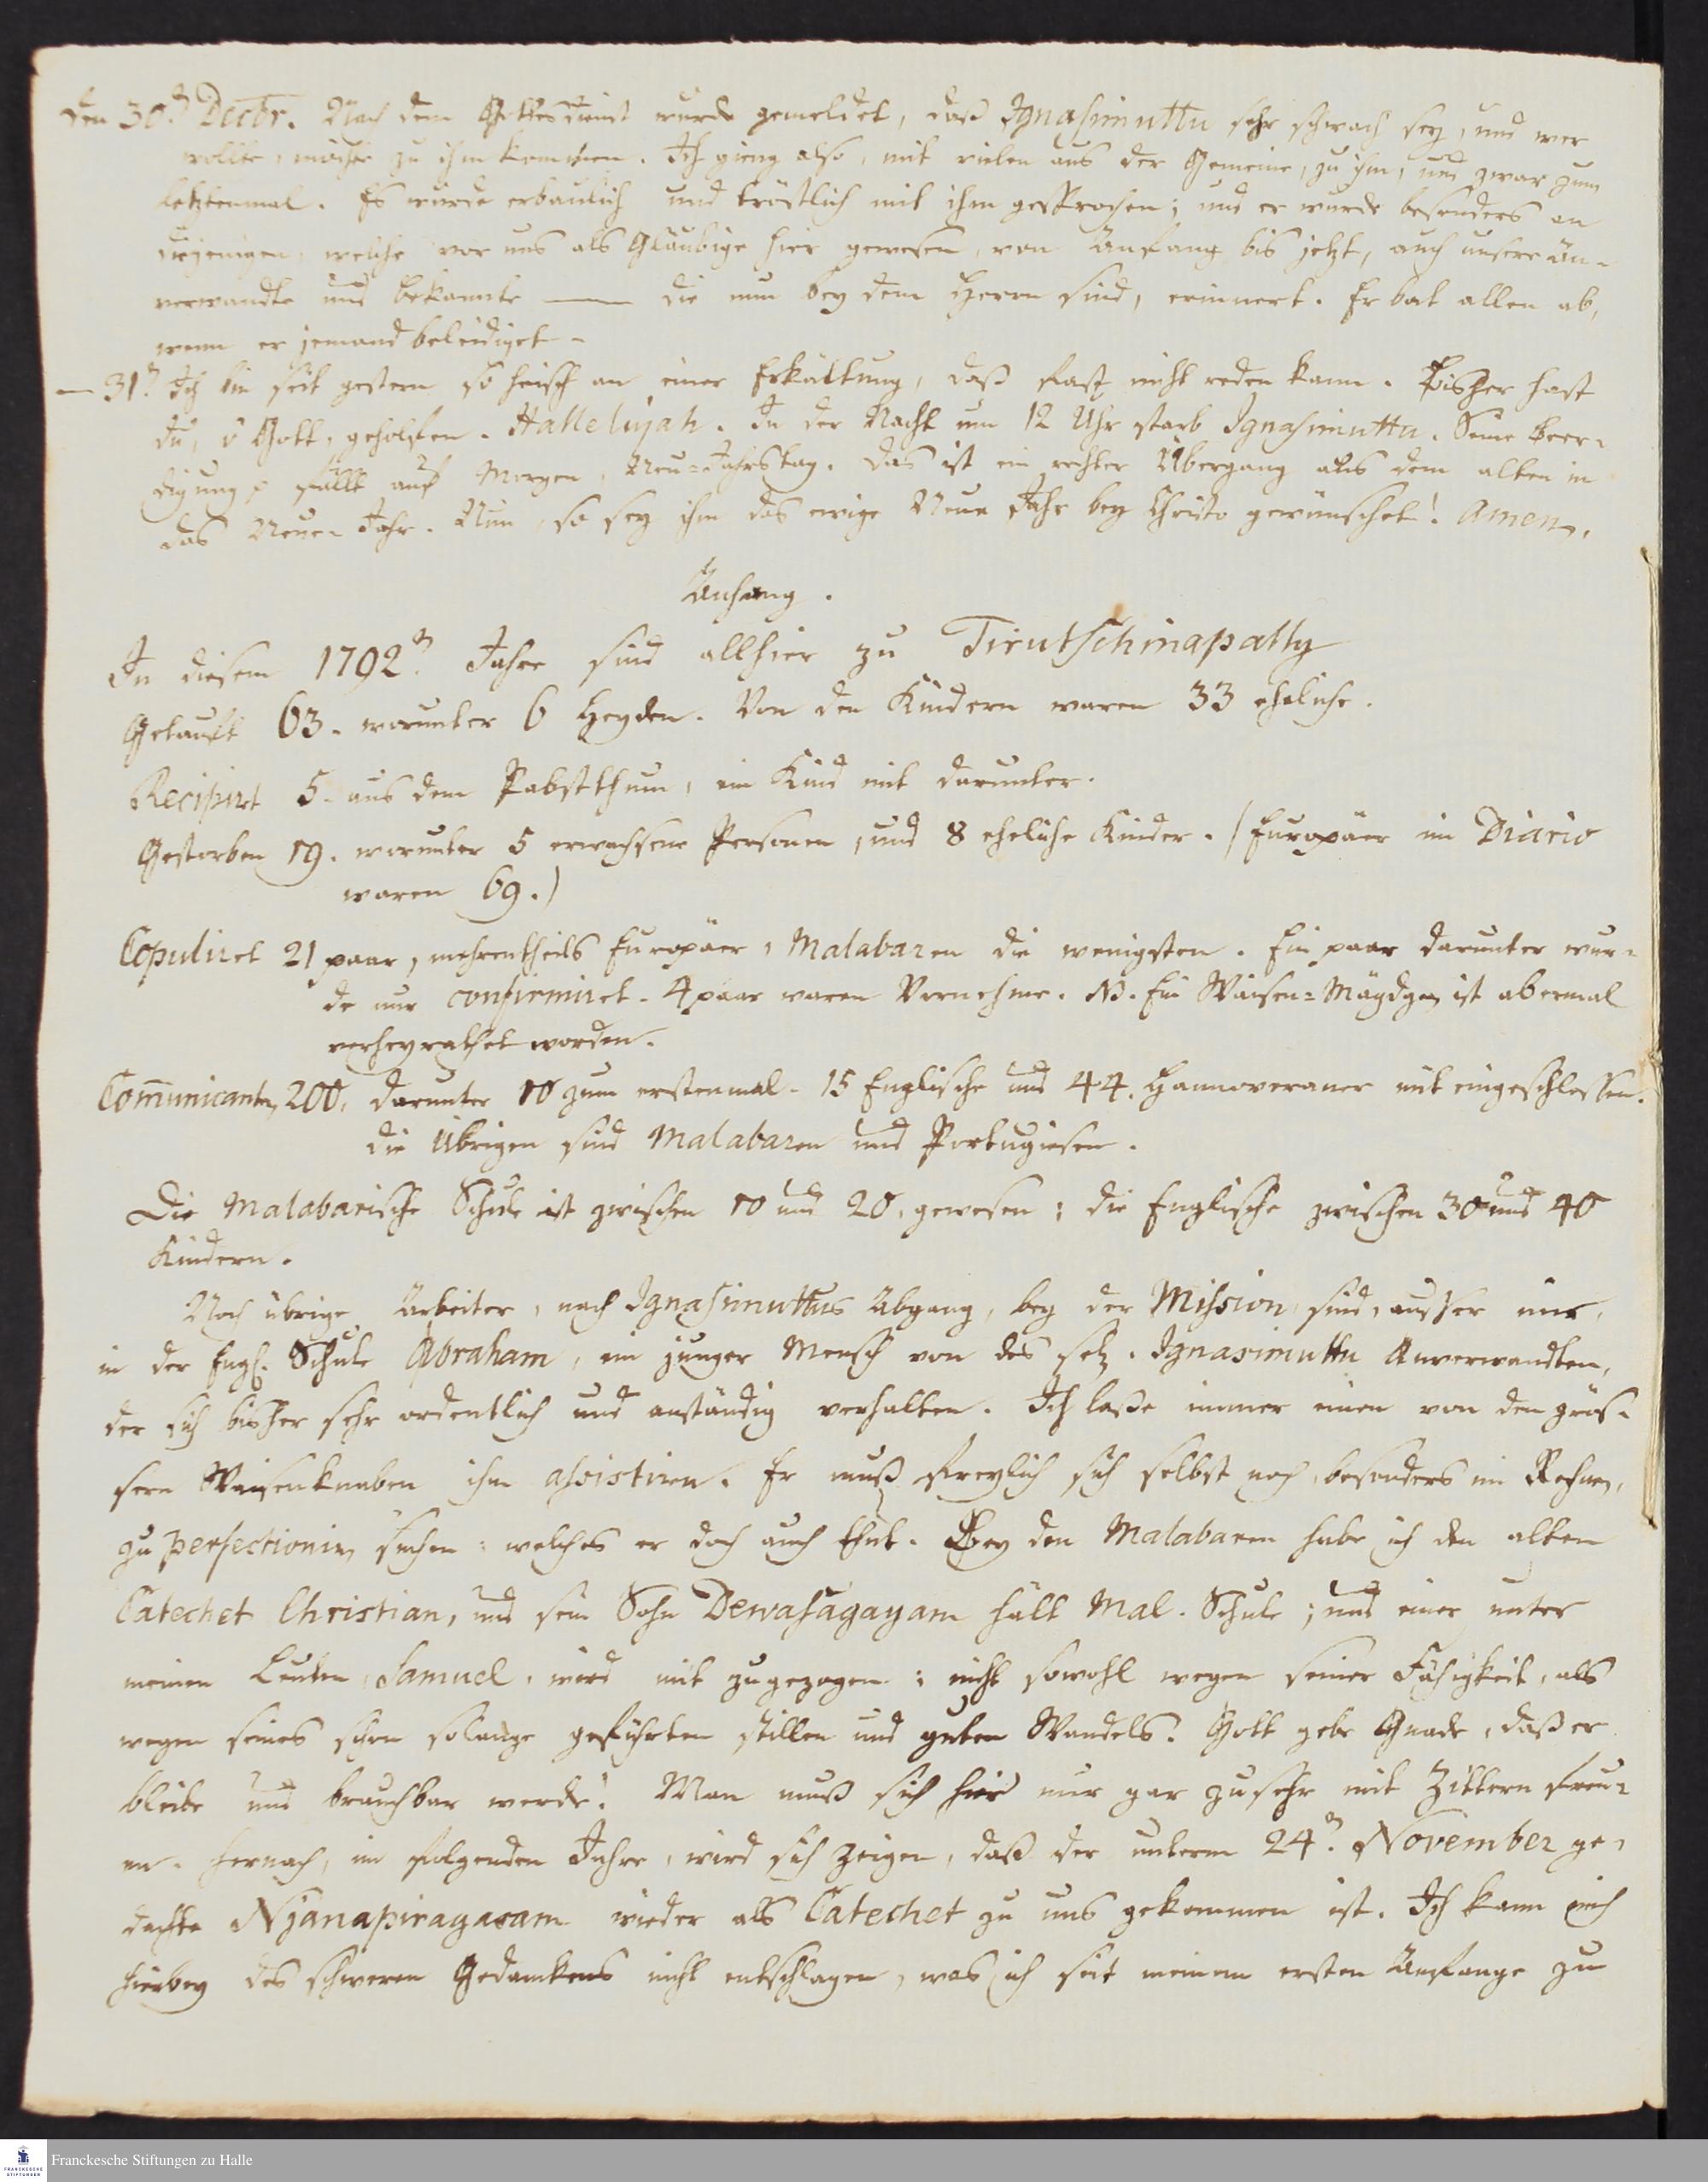 Den 30n Decbr. Nach dem Gottesdienst wurde gemeldet, daß Ignasimuttu sehr schwach sey, und wer
wollte, möchte zu ihm kommen. Ich gieng also, mit vielen aus der Gemeine, zu ihm, und zwar zum
letztenmal. Es wurde erbaulich und tröstlich mit ihm gesprochen; und er wurde besonders an
diejenigen, welche vor uns als Gläubige hier gewesen, von Anfang bis jetzt, auch unsere An-
verwandte und bekannte — die nun bey dem Herrn sind, erinnert. Er bat allen ab,
wenn er jemand beleidiget.
— 31n Ich bin seit gestern so heisch an einer Erkältung, daß fast nicht reden kann. Bisher hast
du, o Gott, geholfen. Hallelujah. In der Nacht um 12 Uhr starb Ignasimuttu. Seine Beer-
digung fällt auf Morgen, Neu-Jahrstag. Das ist ein rechter Übergang aus dem alten in
das Neue Jahr. Nun, so sey ihm das ewige Neue Jahr bey Christo gewünschet! Amen.
Anhang.
In diesem 1792n Jahre sind allhier zu Tirutschinapally
Getauft 63. worunter 6 Heyden. Von den Kindern waren 33 eheliche.
Recipirt 5. aus dem Pabstthum, ein Kind mit darunter.
Gestorben 19. worunter 5 erwachsene Personen, und 8 eheliche Kinder. (Europäer im Diario
waren 69.)
Copuliret 21 paar, mehrentheils Europäer, Malabaren die wenigsten. Ein paar darunter wur-
de nur confirmiret. 4 paar waren Vornehme. NB. Ein Waisen-Mägdgen ist abermal
verheyrathet worden.
Communicanten 200, darunter 10 zum erstenmal. 15 Englische und 44. Hannoveraner mit eingeschlossen.
die übrigen sind Malabaren und Portugiesen.
Die Malabarische Schule ist zwischen 10 und 20. gewesen; die Englische zwischen 30 und 40
Kindern.
Noch übrige Arbeiter, nach Ignasimuttus Abgang, bey der Mission, sind, ausser mir,
in der Engl. Schule Abraham, ein junger Mensch von des sel. Ignasimuttu Anverwandten,
der sich bisher sehr ordentlich und anständig verhalten. Ich laße immer einen von den grös-
sern Waisenknaben ihm assistiren. Er muß freylich sich selbst noch, besonders im Rechnen,
zu perfectioniren suchen: welches er doch auch thut. Bey den Malabaren habe ich den alten
Catechet Christian, und sein Sohn Dewasagayam hält Mal. Schule; und einer unter
meinen Leuten, Samuel, wird mit zugezogen: nicht sowohl wegen seiner Fähigkeit, als
wegen seines schon solange geführten stillen und guten Wandels. Gott gebe Gnade, daß er
bleibe und brauchbar werde! Man muß sich hier nur gar zu sehr mit Zittern freu-
en. Hernach, im folgenden Jahre, wird sich zeigen, daß der unterm 24n. November ge-
dachte Njanapiragasam wieder als Catechet zu uns gekommen ist. Ich kann mich
hierbey des schweren Gedankens nicht entschlagen, was ich seit meinem ersten Anfange zu
Franckesche Stiftungen zu Halle
FRANCKESCHE
STIFTUNGEN